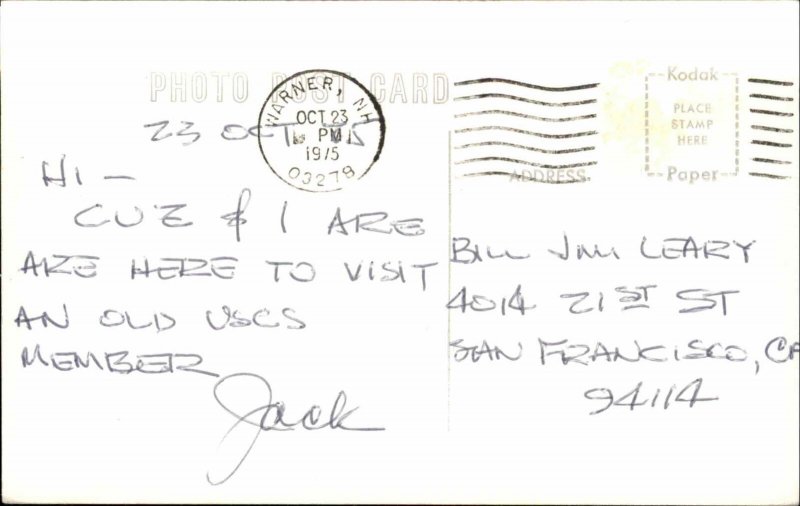 PHOTO POST CARD
WARNER, NH
OCT 23
PM
1975
03278
Kodak
PLACE
STAMP
HERE
Paper
ADDRESS
23 OCT 75
HI –
CUZ & I ARE
ARE HERE TO VISIT
AN OLD USCS
MEMBER
Jack
BILL JIM LEARY
4014 21ST ST
SAN FRANCISCO, CA
94114